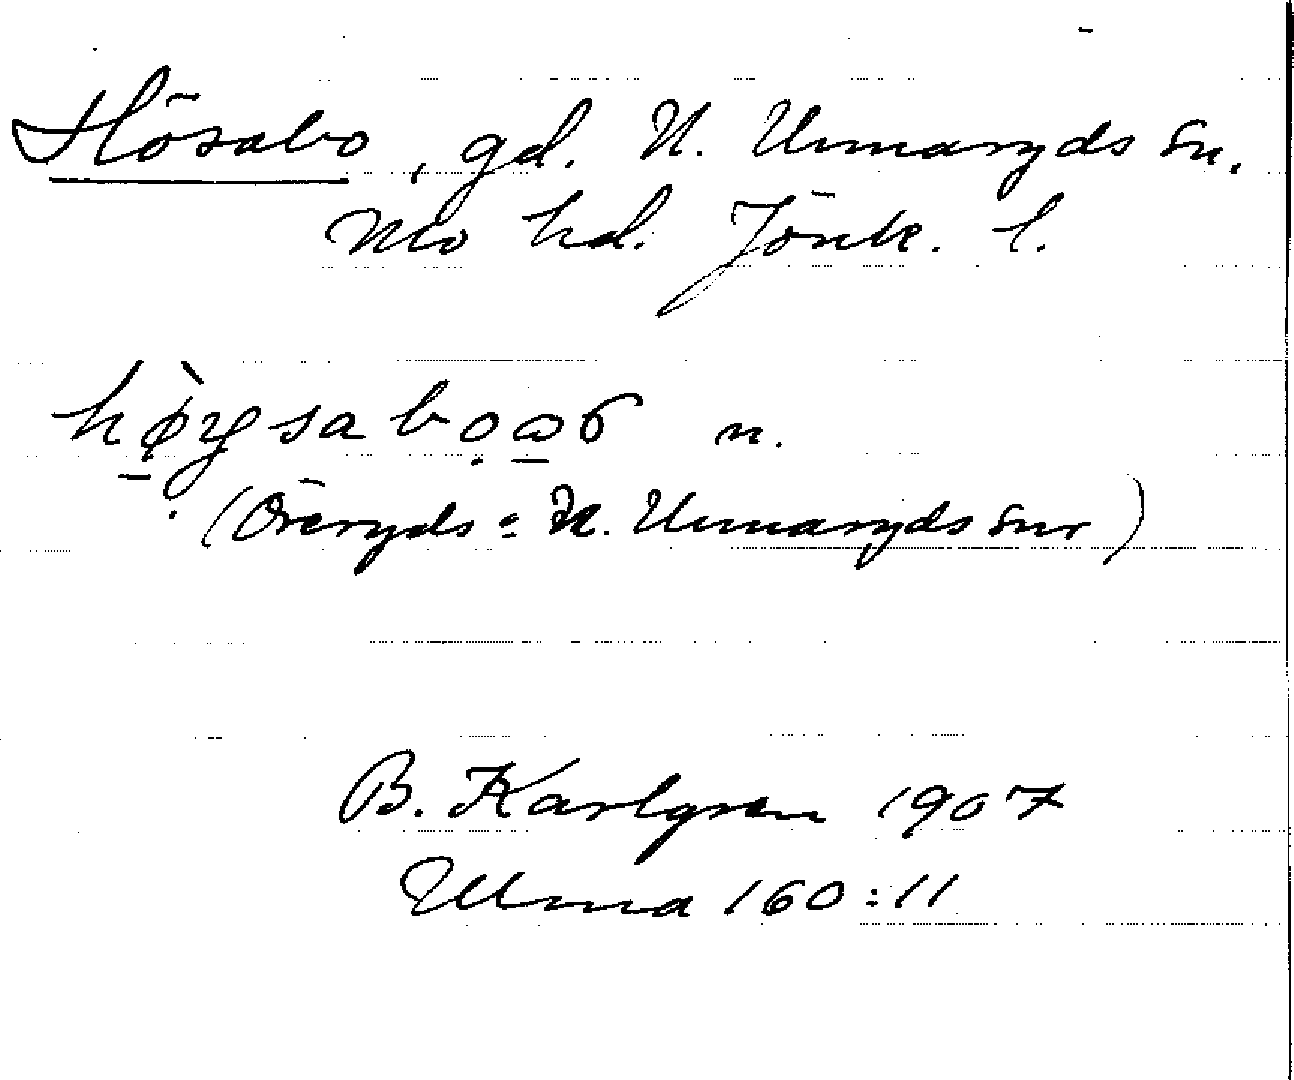 Hösabo, gd. N. Unnaryds sn.
Mo hd. Jönk. l.
n.
(Öreryds = N. Unnaryds snr)
B. Karlgren 1907
Ulma 160:11